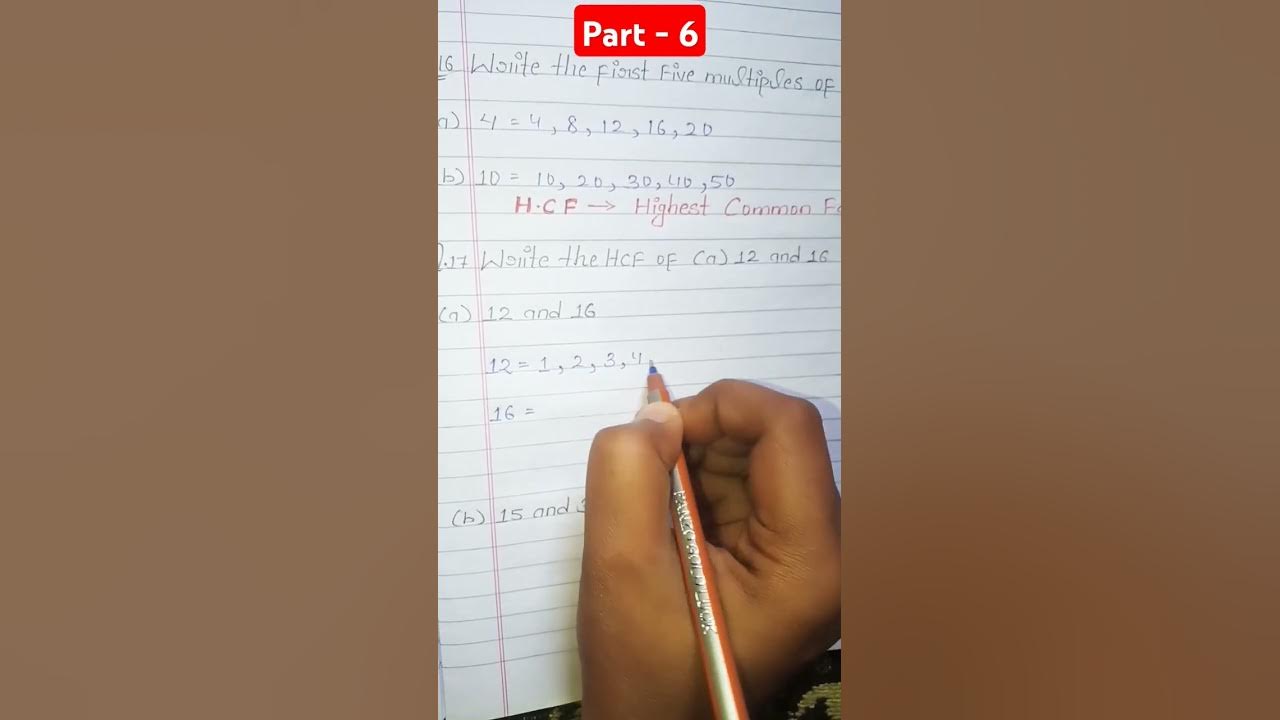 Part - 6
16 Write the First Five multiples of
a) 4 = 4, 8, 12, 16, 20
b) 10 = 10, 20, 30, 40, 50
H.C F → Highest Common
Q.17 Write the HCF of (a) 12 and 16
(a) 12 and 16
12 = 1, 2, 3, 4,
16 =
(b) 15 and